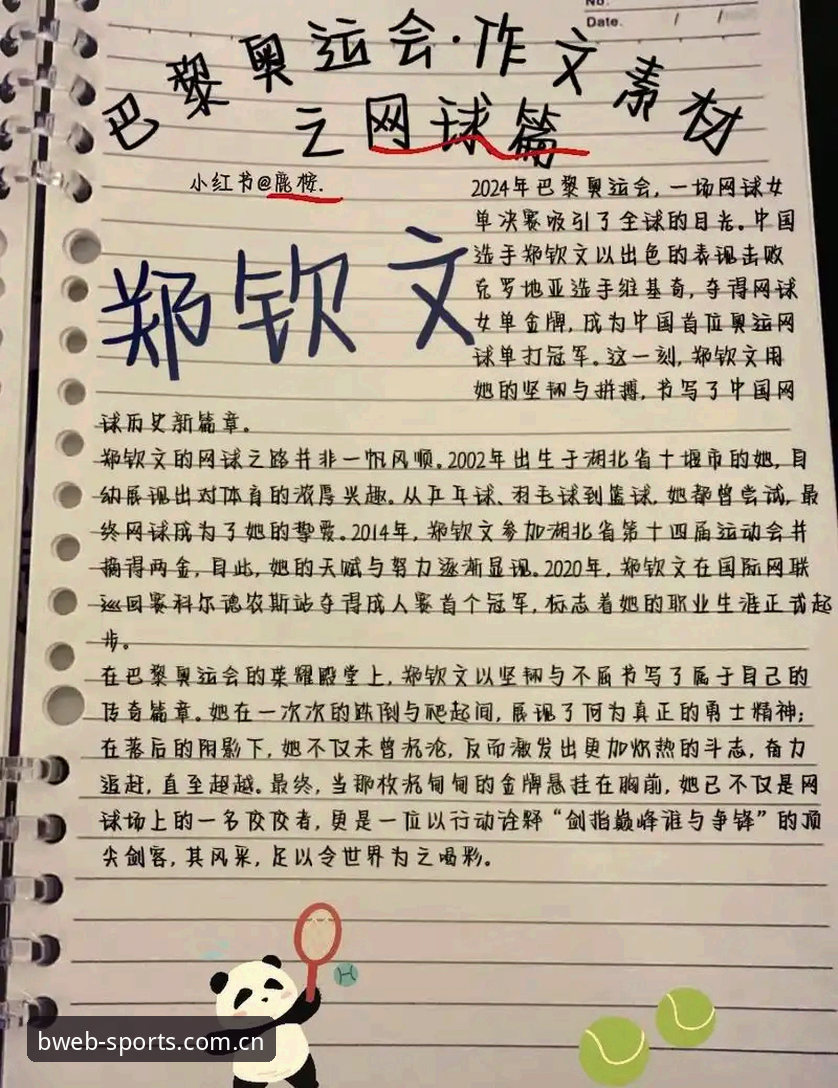 No.
Date. / /
巴黎奥运会·作文素材
之网球篇
小红书@鹿桉.
郑钦文
2024年巴黎奥运会，一场网球女
单决赛吸引了全球的目光。中国
选手郑钦文以出色的表现击败
克罗地亚选手维基奇，夺得网球
女单金牌，成为中国首位奥运网
球单打冠军。这一刻，郑钦文用
她的坚韧与拼搏，书写了中国网
球历史新篇章。
郑钦文的网球之路并非一帆风顺。2002年出生于湖北省十堰市的她，自
幼展现出对体育的浓厚兴趣。从乒乓球、羽毛球到篮球，她都曾尝试，最
终网球成为了她的挚爱。2014年，郑钦文参加湖北省第十四届运动会并
摘得两金，自此，她的天赋与努力逐渐显现。2020年，郑钦文在国际网联
巡回赛科尔德农斯站夺得成人赛首个冠军，标志着她的职业生涯正式起
步。
在巴黎奥运会的荣耀殿堂上，郑钦文以坚韧与不屈书写了属于自己的
传奇篇章。她在一次次的跌倒与爬起间，展现了何为真正的勇士精神；
在落后的阴影下，她不仅未曾沉沦，反而激发出更加炽热的斗志，奋力
追赶，直至超越。最终，当那枚沉甸甸的金牌悬挂在胸前，她已不仅是网
球场上的一名佼佼者，更是一位以行动诠释“剑指巅峰谁与争锋”的顶
尖剑客，其风采，足以令世界为之喝彩。
bweb-sports.com.cn